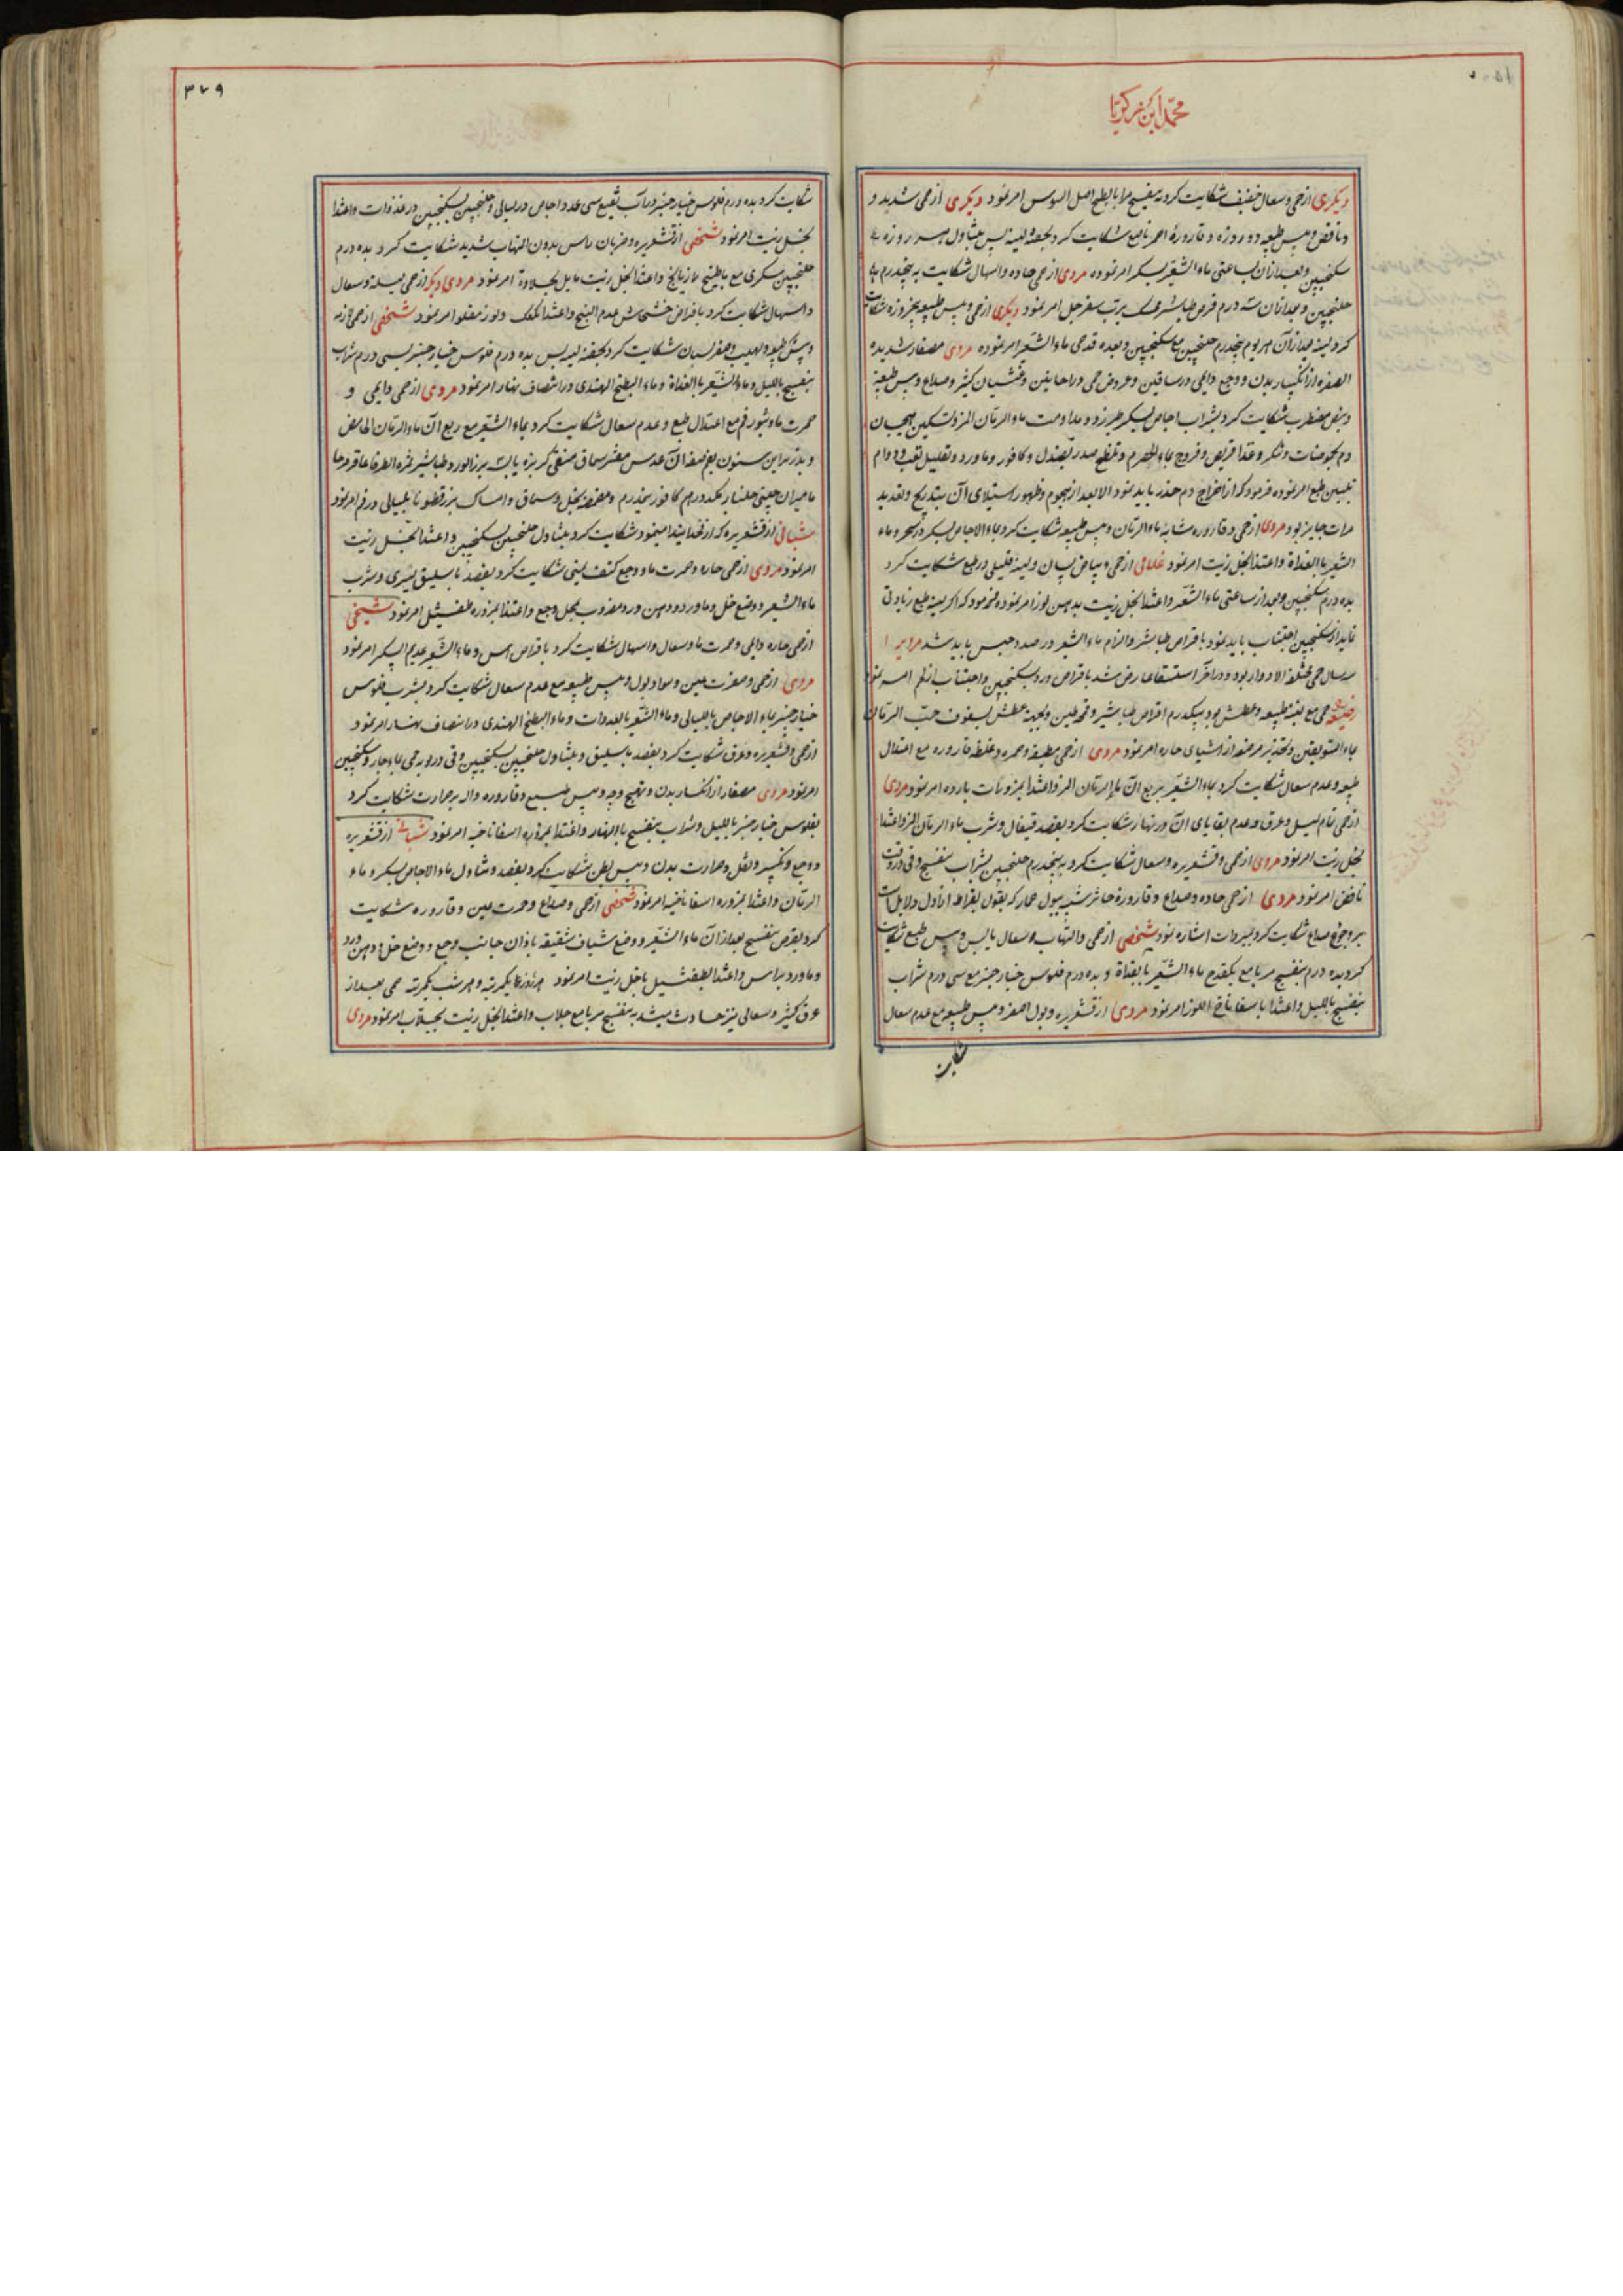 محمد ابن زکریا
دیگری از حمی وسعال خفیف شکایت کرد به بنفسج مربا بطبخ اصل السوس امر نمود دیگری از حمی شدید و
ونافض و یبس طبیعه دو روزه و قارورۀ احمر ناصع شکایت کرد بحقنه لینه پس بتناول هر روزه
سکنجبین وبعد ازان بساعتی ماء الشعیر بسکر امر نموده مردی از حمی حاده واسهال شکایت به پنجدرم
جلنجبین وبعد ازان سه درم قرص طباشیر ممسک برب سفرجل امر نمود دیگری از حمی و یبس طبیعه پنجروزه شکایت
کرد بعد ازان هر یوم پنجدرم جلنجبین مع سکنجبین وبعده قدحی ماء الشعیر امر نموده مردی مصفار شدیده
الصفره از انکسار بدن ووجع دایمی در ساقین وعروض حمی در احایین وغشیان کثیر وصداع و یبس طبیعة
ونبض مضطرب شکایت کرد بشراب اجاص بسکر طبرزد ومداومت ماء الرمان المز وتسکین هیجان
دم بحموضات وشکر وغذا قریص وفروج بماء الحصرم وتلطخ صدر بصندل وکافور وماورد وتقلیل تعب ودوام
تلیین طبع امر نموده فرمود که از اخراج دم حذر باید نمود الا بعد از هجوم وظهور استیلای آن بتدریج وتعدید
مرات جایز بود مردی از حمی وقاروره مشابه ماء الرمان ویبس طبیعه شکایت کرد بماء الاجاص بسکر در سحر وماء
الشعیر بالغداة واعتذا بخل زیت امر نمود غلامی از حمی وبیاض لسان ولینه قلیلی در طبع شکایت کرد
بده درم سکنجبین وبعد از ساعتی ماء الشعیر واعتذا بخل زیت بدهن لوز امر نموده فرمود که اگر لینه طبع زیادتی
نماید از سکنجبین اجتناب باید نمود باقراص طباشیر والزام ماء الشعیر در صدد حبس باید شد مردیرا
سه سال حمی مختلفة الادوار بود ودر آخر استسقا عارض شد باقراص ورد وسکنجبین واجتناب از لحم امر نمود
حمی مع لینه طبیعه وعطش بود بیکدرم اقراص طباشیر وبجهت عطش بسفوف حب الرمان
بماء السویقین وتحذیر مرضعه از اشیای حاره امر نمود مردی از حمی مطبقه وحمره وغلظ قاروره مع اعتقال
طبیعه وعدم سعال شکایت کرد بماء الشعیر بربع آن ماء الرمان المز واعتذا بمزورات بارده امر نمود مردی
از حمی تمام لیل وعرق وعدم بقایای آن در نهار شکایت کرد بفصد قیفال وشرب ماء الرمان المز واعتذا
بخل زیت امر نمود مردی از حمی وقشعریره وسعال شکایت کرد به پنجدرم جلنجبین بشراب بنفسج وقی در وقت
نافض امر نمود مردی از حمی حاده وصداع وقارورۀ خاثر شبیه ببول حمار که بقول بقراط از اول دلایل است
بر وجع صداع شکایت کرد بمبردات اشاره نمود شخصی از حمی والتهاب وسعال یابس ویبس طبیع شکایت
کرد بده درم بنفسج مربا مع یکقدح ماء الشعیر بالغداة وبده درم فلوس خیار چنبر مع سی درم شراب
بنفسج باللیل واعتذا باسفاناخ اللوز امر نمود مردی از قشعریره وبول اصفر ویبس طبیعه مع عدم سعال
شکایت
۳۷۹
شکایت کرد بده درم فلوس خیار چنبر در آب نقیع سی عدد اجاص در لیالی وجلنجبین بسکنجبین در غدوات واعتذا
بخل زیت امر نمود شخصی از قشعریره وضربان راس بدون التهاب شدید شکایت کرد بده درم
جلنجبین سکری مع باطبیخ رازیانج واعتذا بخل زیت مایل بحلاوة امر نمود مردی دیگر از حمی لیلیه وسعال
واسهال شکایت کرد باقراص خشخاش عدیم البنج واعتذا بکعک ولوز مقلو امر نمود شخصی از حمی
ویبس طبیعه ولهیب وصفر لسان شکایت کرد بحقنه لینه پس بده درم فلوس خیار چنبر بسی درم شراب
بنفسج باللیل وماء الشعیر بالغداة وماء البطیخ الهندی در انتصاف نهار امر نمود مردی از حمی دایمی و
حمرت ماء وبثور فم مع اعتدال طبع وعدم سعال شکایت کرد بماء الشعیر مع ربع آن ماء الرمان الحامض
وبذر براین سنون بفم عدس مقشر سماق منقی کزبره یابسه بزر الورد طباشیر ثمره الطرفا عاقر قرحا
مامیران چینی جلنار یکدرهم کافور نیمدرم ومضمضه بخل وسماق وامساک بزر قطونا بلیالی در فم امر نمود
شبانی از قشعریره که از فخذ ابتدا مینمود شکایت کرد بتناول جلنجبین بسکنجبین واعتذا بخل زیت
امر نمود مردی از حمی حاره وحمرت ماء ووجع کتف یمنی شکایت کرد بفصد باسلیق یسری وشرب
ماء الشعیر ووضع خل وماورد ودهن ورد مضروب بمحل وجع واعتذا بمزوره طفشیل امر نمود شیخی
از حمی حاره دایمی وحمرت ماء وسعال واسهال شکایت کرد باقراص اس وماء الشعیر عدیم السکر امر نمود
مردی از حمی وصفرت عین وسواد بول ویبس طبیعه مع عدم سعال شکایت کرد بشرب فلوس
خیار چنبر بماء الاجاص باللیالی وماء الشعیر بالغدوات وماء البطیخ الهندی در انتصاف نهار امر نمود
از حمی وقشعریره وعرق شکایت کرد بفصد باسلیق وبتناول جلنجبین بسکنجبین وقی در نوبه حمی بماء حار وسکنجبین
امر نمود مردی مصفار از انکسار بدن وتهیج وجه ویبس طبیع وقاروره داله بر حرارت شکایت کرد
بفلوس خیار چنبر باللیل وشراب بنفسج بالنهار واعتذا بمزوره اسفاناخیه امر نمود شبانی از قشعریره
ووجع وتکسیر وثقل وحرارت بدن ویبس بطن شکایت کرد بفصد وتناول ماء الاجاص بسکر وماء
الرمان واعتذا بمزوره اسفاناخیه امر نمود شخصی از حمی وصداع وحمرت عین وقاروره شکایت
کرد بقرص بنفسج بعد از آن ماء الشعیر ووضع شیاف شقیقه باذان جانب وجع ووضع خل ودهن ورد
وماورد براس واعتذا بطفشیل باخل زیت امر نمود هر روز یکمرتبه وهر شب یکمرتبه حمی بعد از
عرق کثیر وسعالی نیز حادث میشد به بنفسج مربا مع جلاب واعتذا بخل زیت بجلاب امر نمود مردی